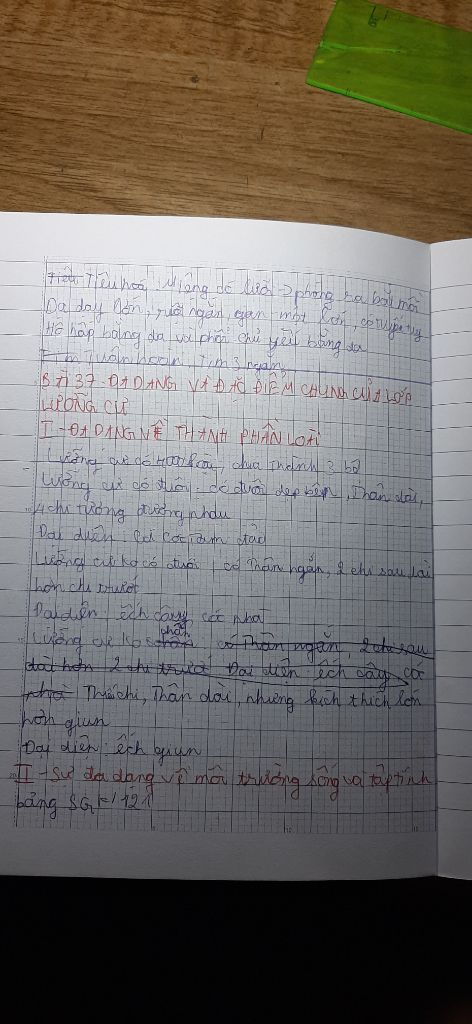 Tiêu hoá: Miệng có lưỡi phóng ra bắt mồi
Dạ dày lớn, ruột ngắn, gan mật lớn, có tuyến tụy
Hô hấp bằng da và phổi chủ yếu bằng da
Tuần hoàn: Tim 3 ngăn
BÀI 37. ĐA DẠNG VÀ ĐẶC ĐIỂM CHUNG CỦA LỚP
LƯỠNG CƯ
I - ĐA DẠNG VỀ THÀNH PHẦN LOÀI
Lưỡng cư có 4000 loài, chia thành 3 bộ
Lưỡng cư có đuôi: có đuôi dẹp bên, Thân dài,
4 chi tương đương nhau
Đại diện: Cá cóc tam đảo
Lưỡng cư ko có đuôi: có Thân ngắn, 2 chi sau dài
hơn chi trước
Đại diện: ếch cây, cóc nhà
Lưỡng cư ko chân: có Thân ngắn, 2 chi sau
dài hơn 2 chi trước Đại diện ếch cây cóc
nhà Thiếu chi, Thân dài, nhưng kích thích lớn
hơn giun
Đại diện: ếch giun
II - Sự đa dạng về môi trường sống và tập tính
bảng SGK/121